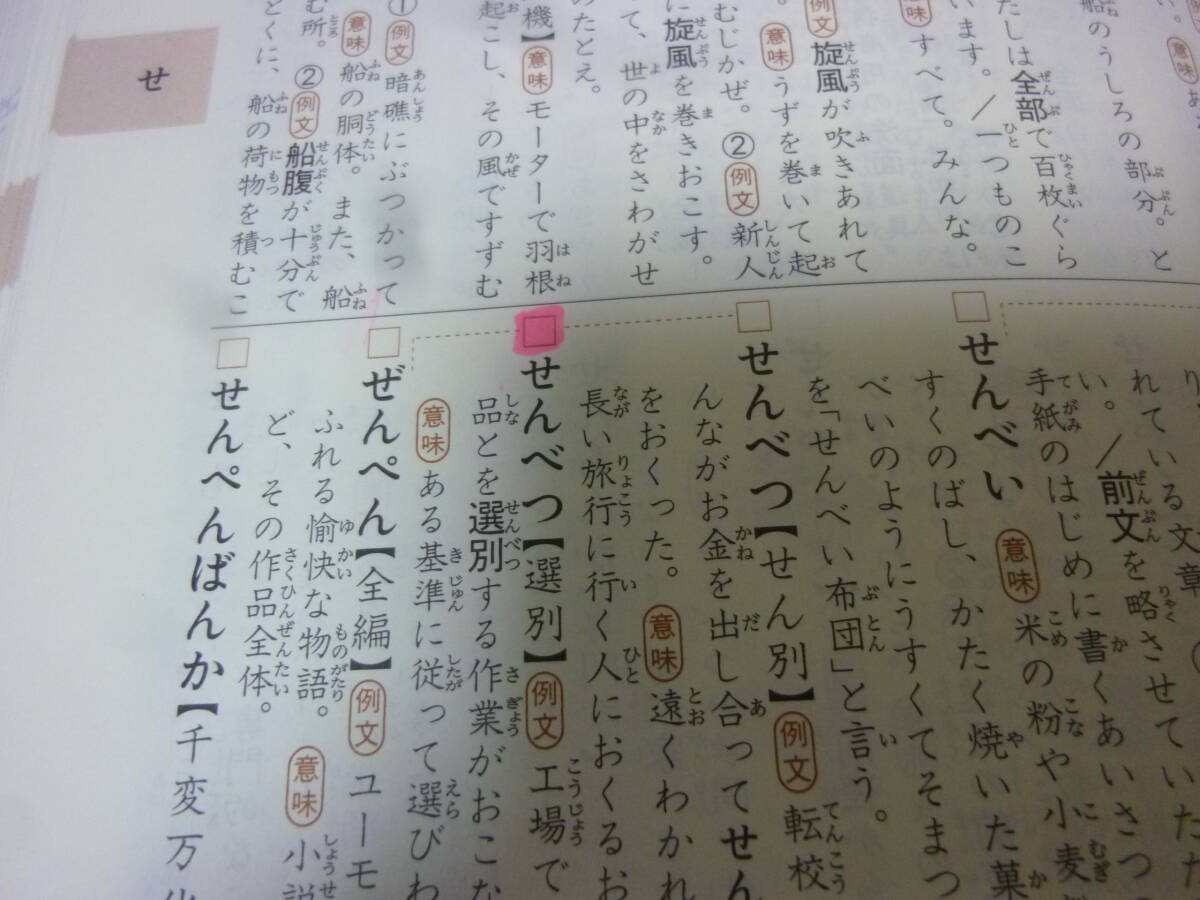 意味 あ
船のうしろの部分。と
たしは全部で百枚ぐら
います。／一つものこ
意味 すべて。みんな。
例文 旋風が吹きあれて
。意味 うずを巻いて起
むじかぜ。② 例文 新人
に旋風を巻きおこす。
て、世の中をさわがせ
のたとえ。
機】意味 モーターで羽根
起こし、その風ですずむ
① 例文 暗礁にぶつかって
意味 船の胴体。また、船
む所。② 例文 船腹が十分で
とくに、船の荷物を積むこ
れている文章
い。／前文を略させていただ
手紙のはじめに書くあいさつの
□せんべい 意味 米の粉や小麦
すくのばし、かたく焼いた菓
べいのようにうすくてそまつ
を「せんべい布団」と言う。
□せんべつ【せん別】例文 転校
んながお金を出し合ってせん
をおくった。 意味 遠くわかれ
長い旅行に行く人におくるお
□せんべつ【選別】例文 工場で
品とを選別する作業がおこな
意味 ある基準に従って選びわ
□ぜんぺん【全編】例文 ユーモ
ふれる愉快な物語。 意味 小説
ど、その作品全体。
□せんぺんばんか【千変万化
せ